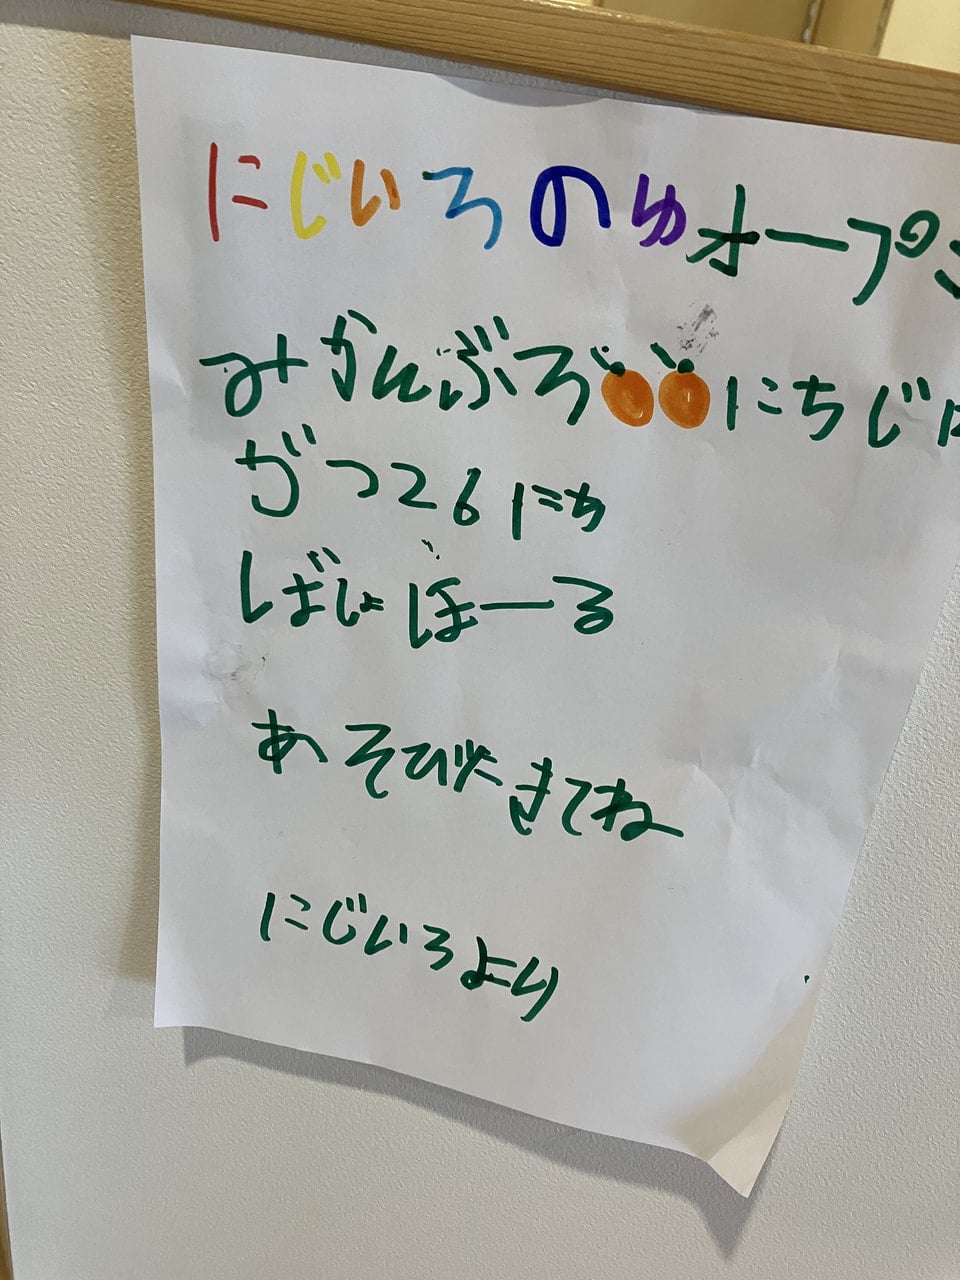 にじいろのゆオープン
みかんぶろにちじは
がつ26にち
ばしょほーる
あそびにきてね
にじいろより